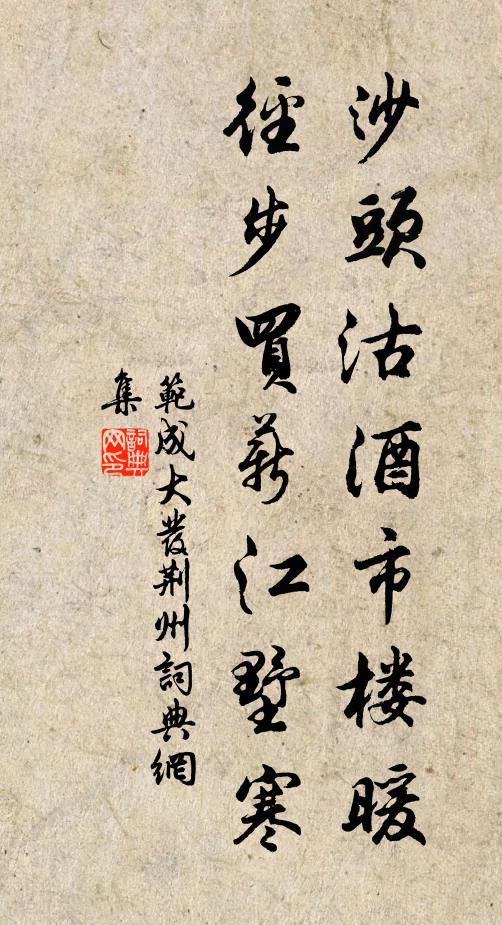 沙頭沽酒市楼暖
徑步買薪江墅寒
範成大發荆州詞典網
集
詞典網印